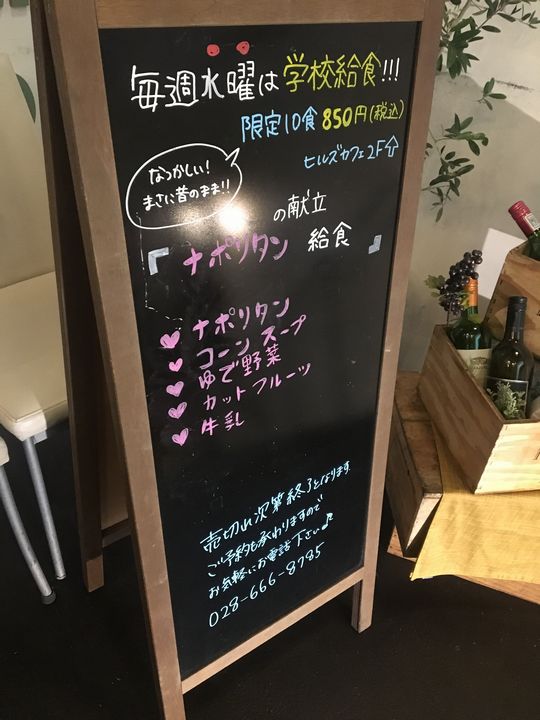 毎週水曜は学校給食!!!
限定10食 850円(税込)
ヒルズカフェ2F☆
なつかしい!
まさに昔のまま!!
の献立
『ナポリタン 給食』
♥ナポリタン
♥コーンスープ
♥ゆで野菜
♥カットフルーツ
♥牛乳
売切れ次第終了となります
ご予約も承わりますので
お気軽にお電話下さい♪
028-666-8785